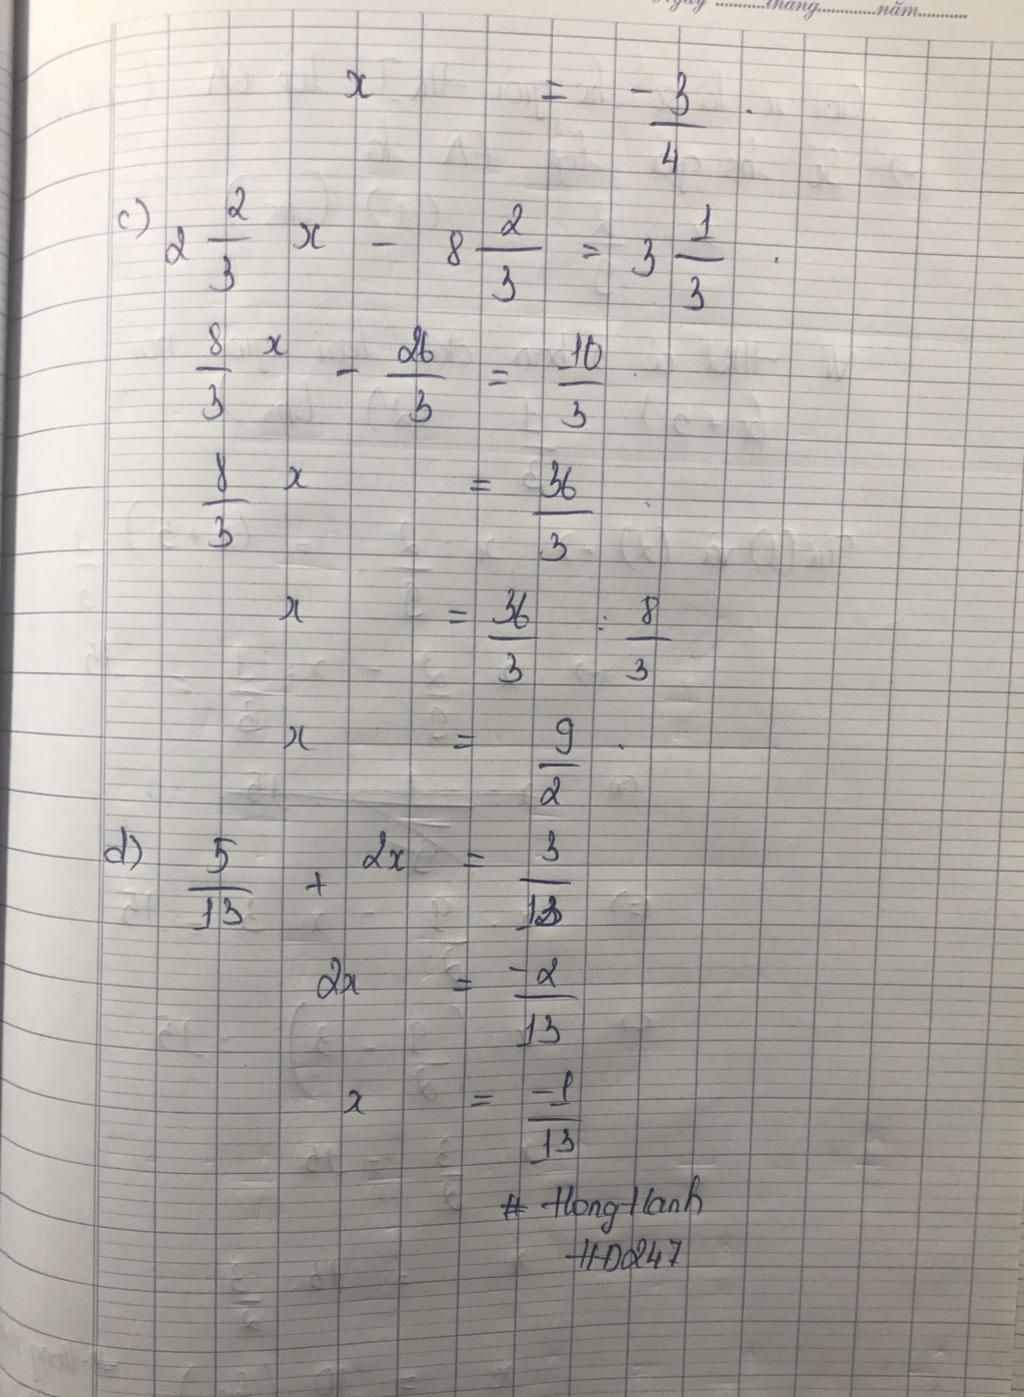 Ngày ..........tháng............năm..........
x = -3/4 .
c) 2 2/3 x - 8 2/3 = 3 1/3 .
8/3 x - 26/3 = 10/3 .
8/3 x = 36/3 .
x = 36/3 : 8/3
x = 9/2 .
d) 5/13 + 2x = 3/13
2x = -2/13
x = -1/13
# HongHanh
HD247